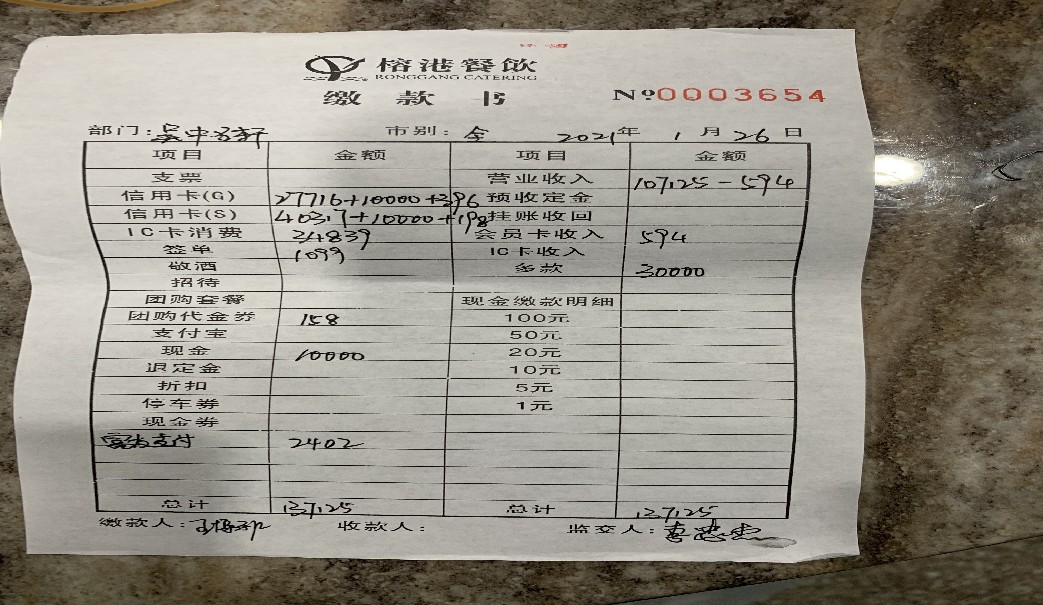 榕港餐飲
RONGGANG CATERING
缴款书 №0003654
部门: 市别:全 2021年1月26日
项目 金额 项目 金额
支票 营业收入 107125-594
信用卡(G) 27716+10000+396 预收定金
信用卡(S) 40317+10000+198 挂账收回
IC卡消费 24839 会员卡收入 594
签单 1099 IC卡收入
敬酒 多款 30000
招待
团购套餐 现金缴款明细
团购代金券 158 100元
支付宝 50元
现金 10000 20元
退定金 10元
折扣 5元
停车券 1元
现金券
支付 2402
总计 137125 总计 137125
缴款人: 收款人: 监交人: